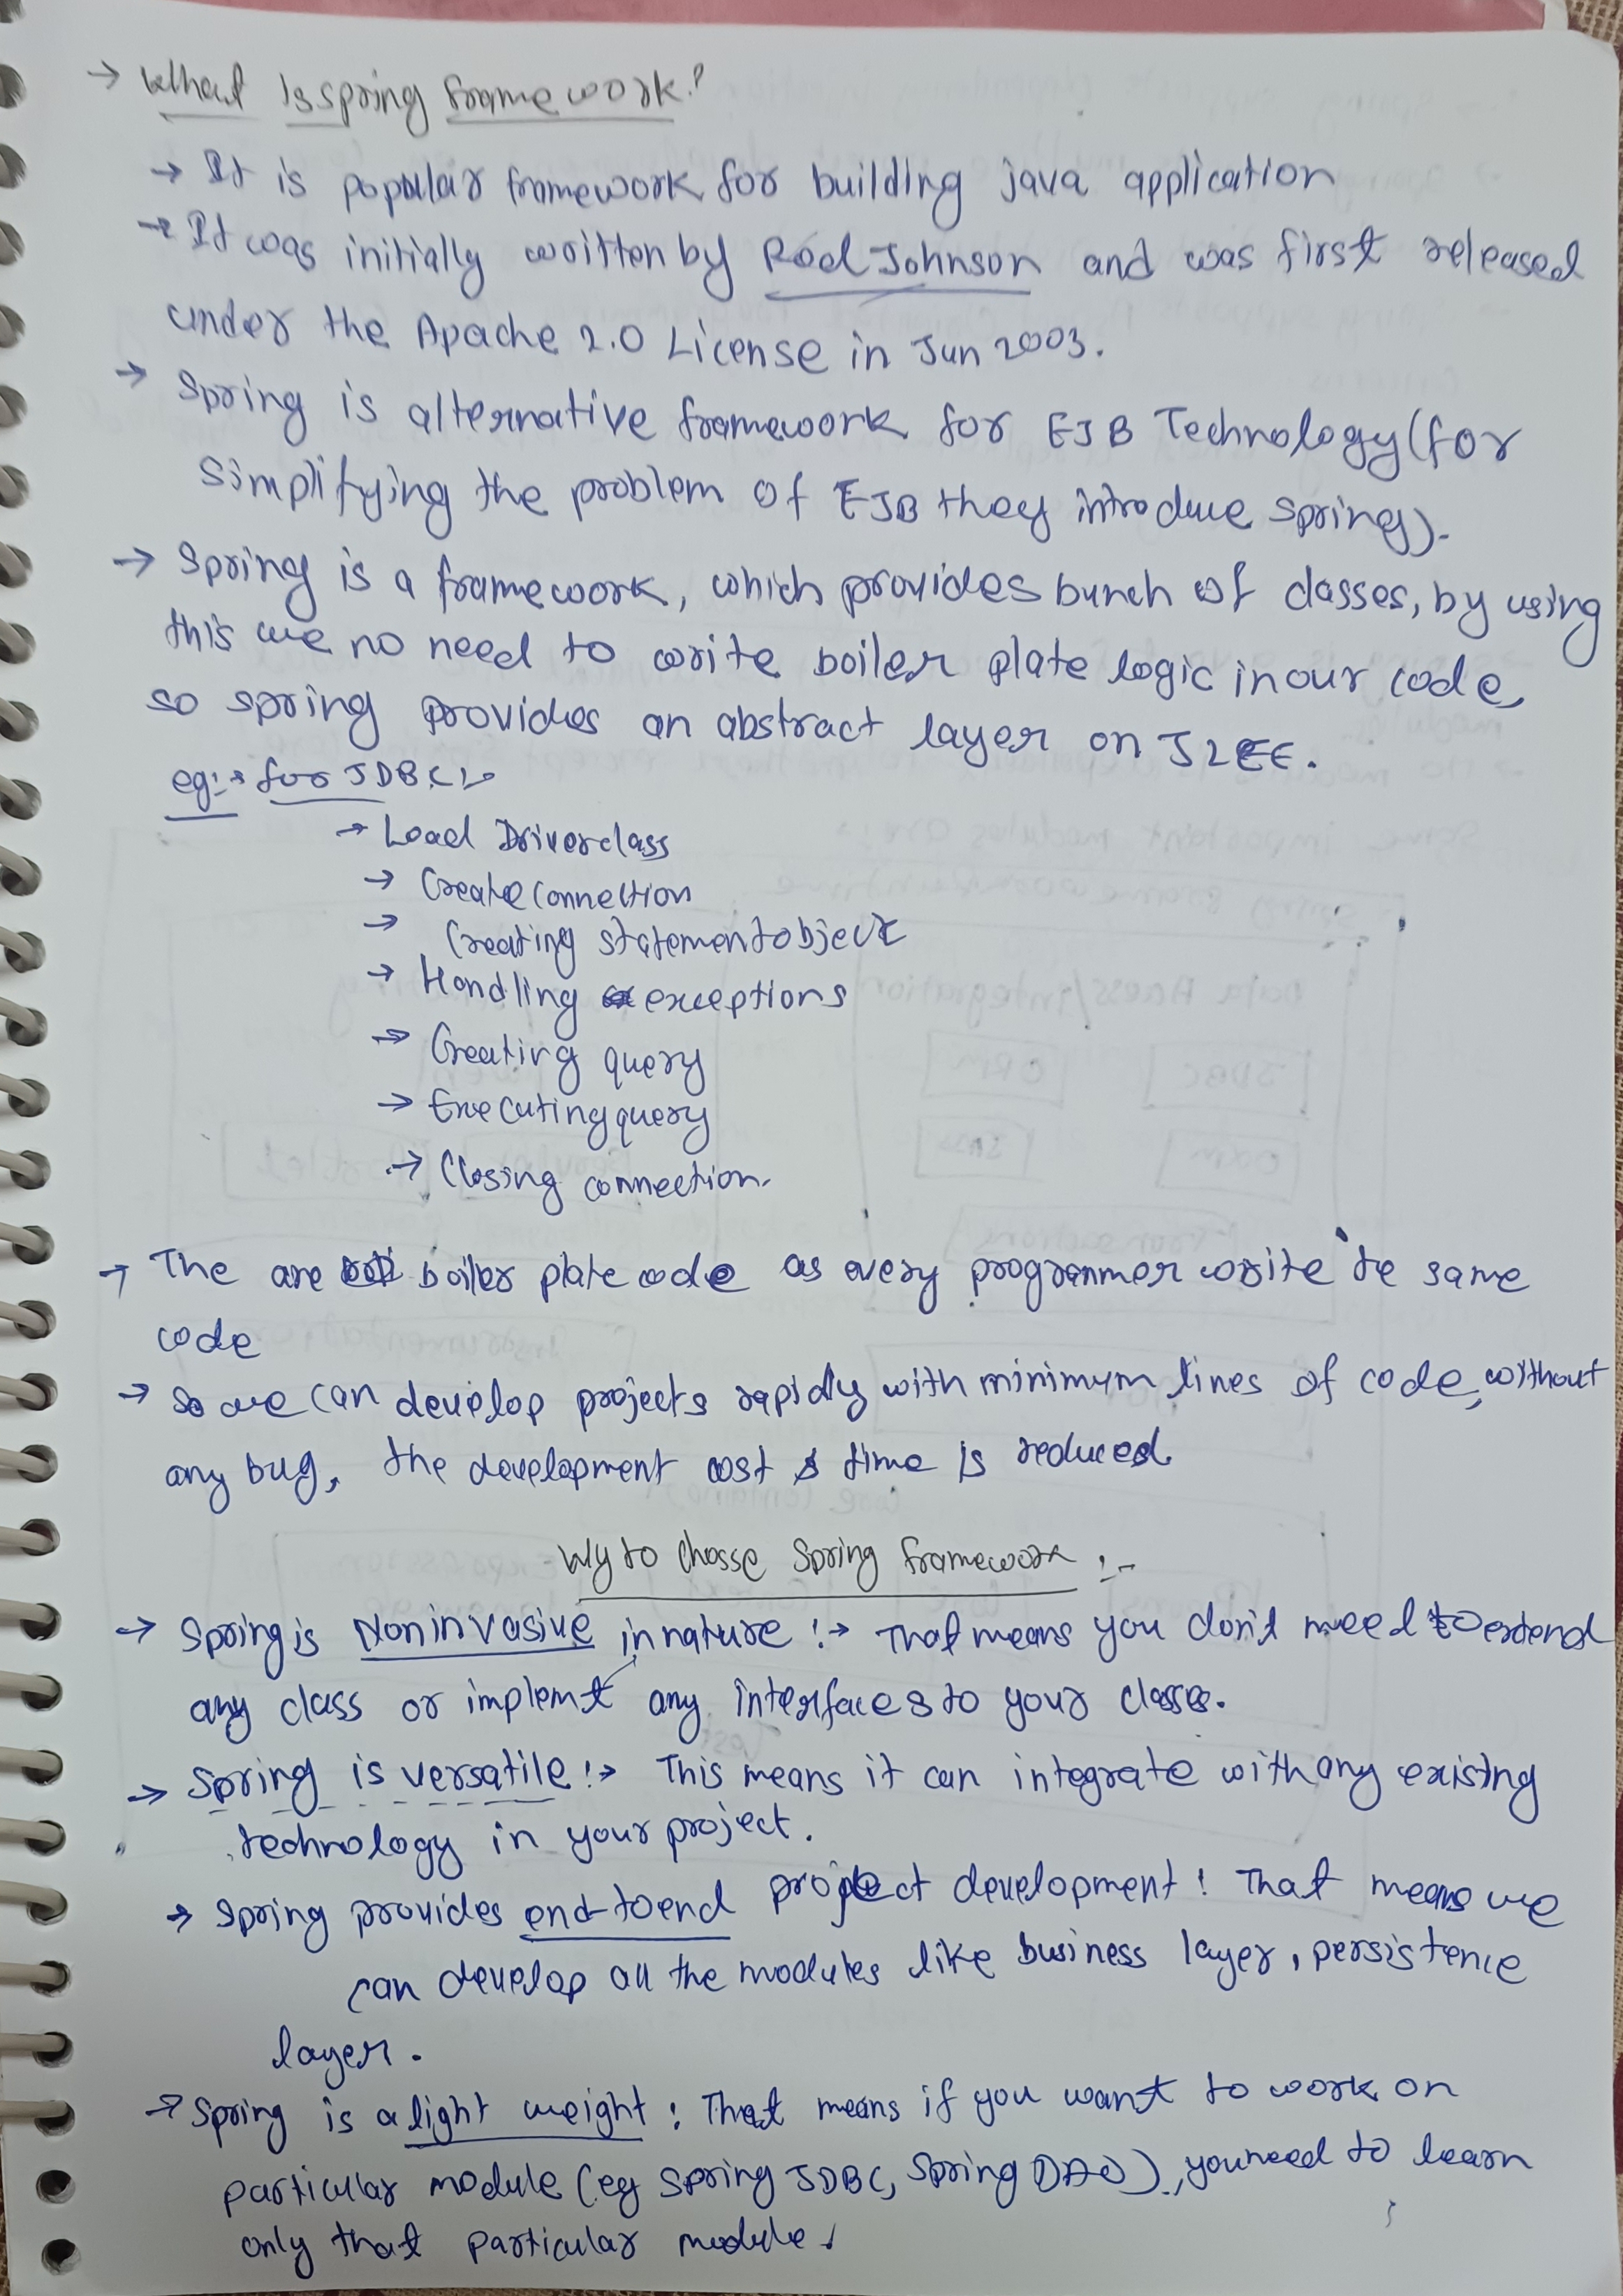 → What Is spring framework?
→ It is popular framework for building java application
→ It was initially written by Rod Johnson and was first released
under the Apache 2.0 License in Jun 2003.
→ Spring is alternative framework for EJB Technology (for
simplifying the problem of EJB they introduce spring).
→ Spring is a framework, which provides bunch of classes, by using
this we no need to write boiler plate logic in our code,
so spring provides an abstract layer on J2EE.
eg:→ for JDBC:→
→ Load Driverclass
→ Create connection
→ Creating statement object
→ Handling exceptions
→ Creating query
→ Executing query
→ Closing connection.
→ The are boiler plate code as every programmer write te same
code
→ so we can develop projects rapidly with minimum lines of code, without
any bug, the development cost & time is reduced.
Wy to chosse Spring framework :-
→ Spring is Noninvasive in nature :→ That means you don't need to extend
any class or implemt any interfaces to your classes.
→ Spring is versatile :→ This means it can integrate with any existing
technology in your project.
→ Spring provides end-to end project development : That means we
can develop all the modules like business layer, persistence
layer.
→ Spring is a light weight : That means if you want to work on
particular module (eg Spring JDBC, Spring DAO), you need to learn
only that particular module.